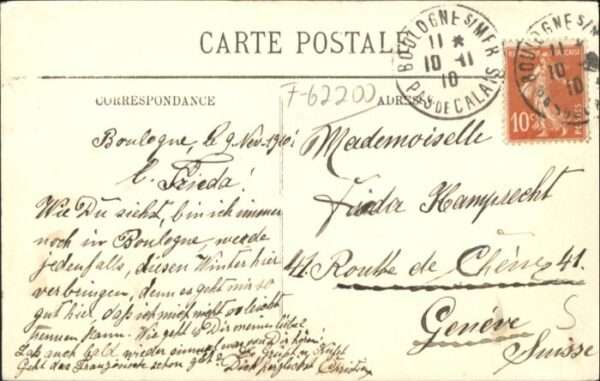 CARTE POSTALE
BOULOGNE S/MER
11 *
10 -11
10
PAS DE CALAIS
BOULOGNE S/M
11
10
10
10c
POSTES
F-62200
CORRESPONDANCE
ADRESSE
Boulogne, le 9 Nov. 1910.
L. Frieda!
Wie Du siehst, bin ich immer
noch in Boulogne, werde
jedenfalls, diesen Winter hier
verbringen, denn es geht mir so
gut hier, daß ich mich nicht so leicht
trennen kann. Wie geht es Dir meine liebe?
Laß auch bald wieder einmal was von Dir hören!
Geht das Französisch schon gut? Es Grüßt u. Küßt
Dich herzlichst Christian
Mademoiselle
Frida Hamprecht
41. Routte de Chêne 41.
Genève
Suisse